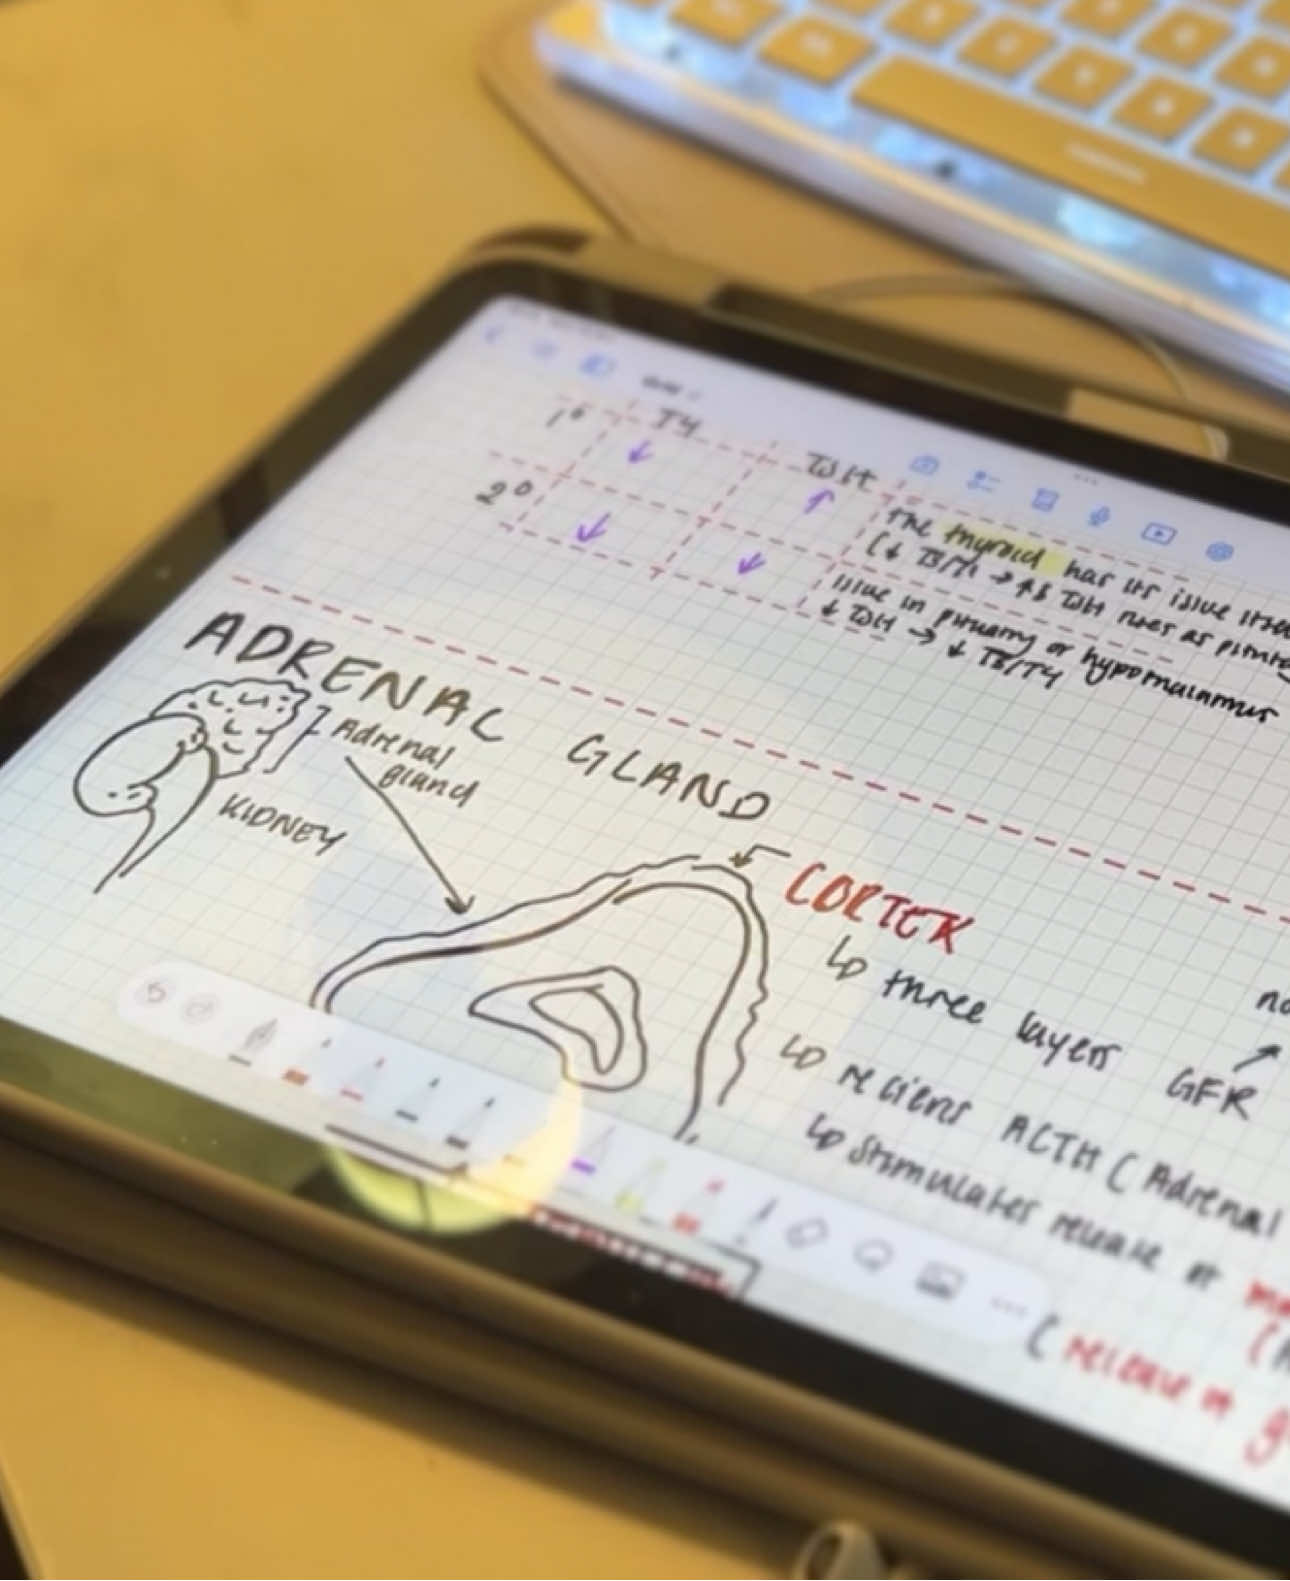 1° T4 TSH
↓ ↑ the thyroid has its issue
(↓ T3/T4 → ↑↑ TSH rises as
2° ↓ ↓ issue in pituitary or hypothalamus
↓ TSH → ↓ T3/T4
ADRENAL GLAND
Adrenal
gland
KIDNEY
CORTEX
↳ three layers
GFR ↗
↳ reciens ACTH (Adrenal
↳ stimulates release of
(release of